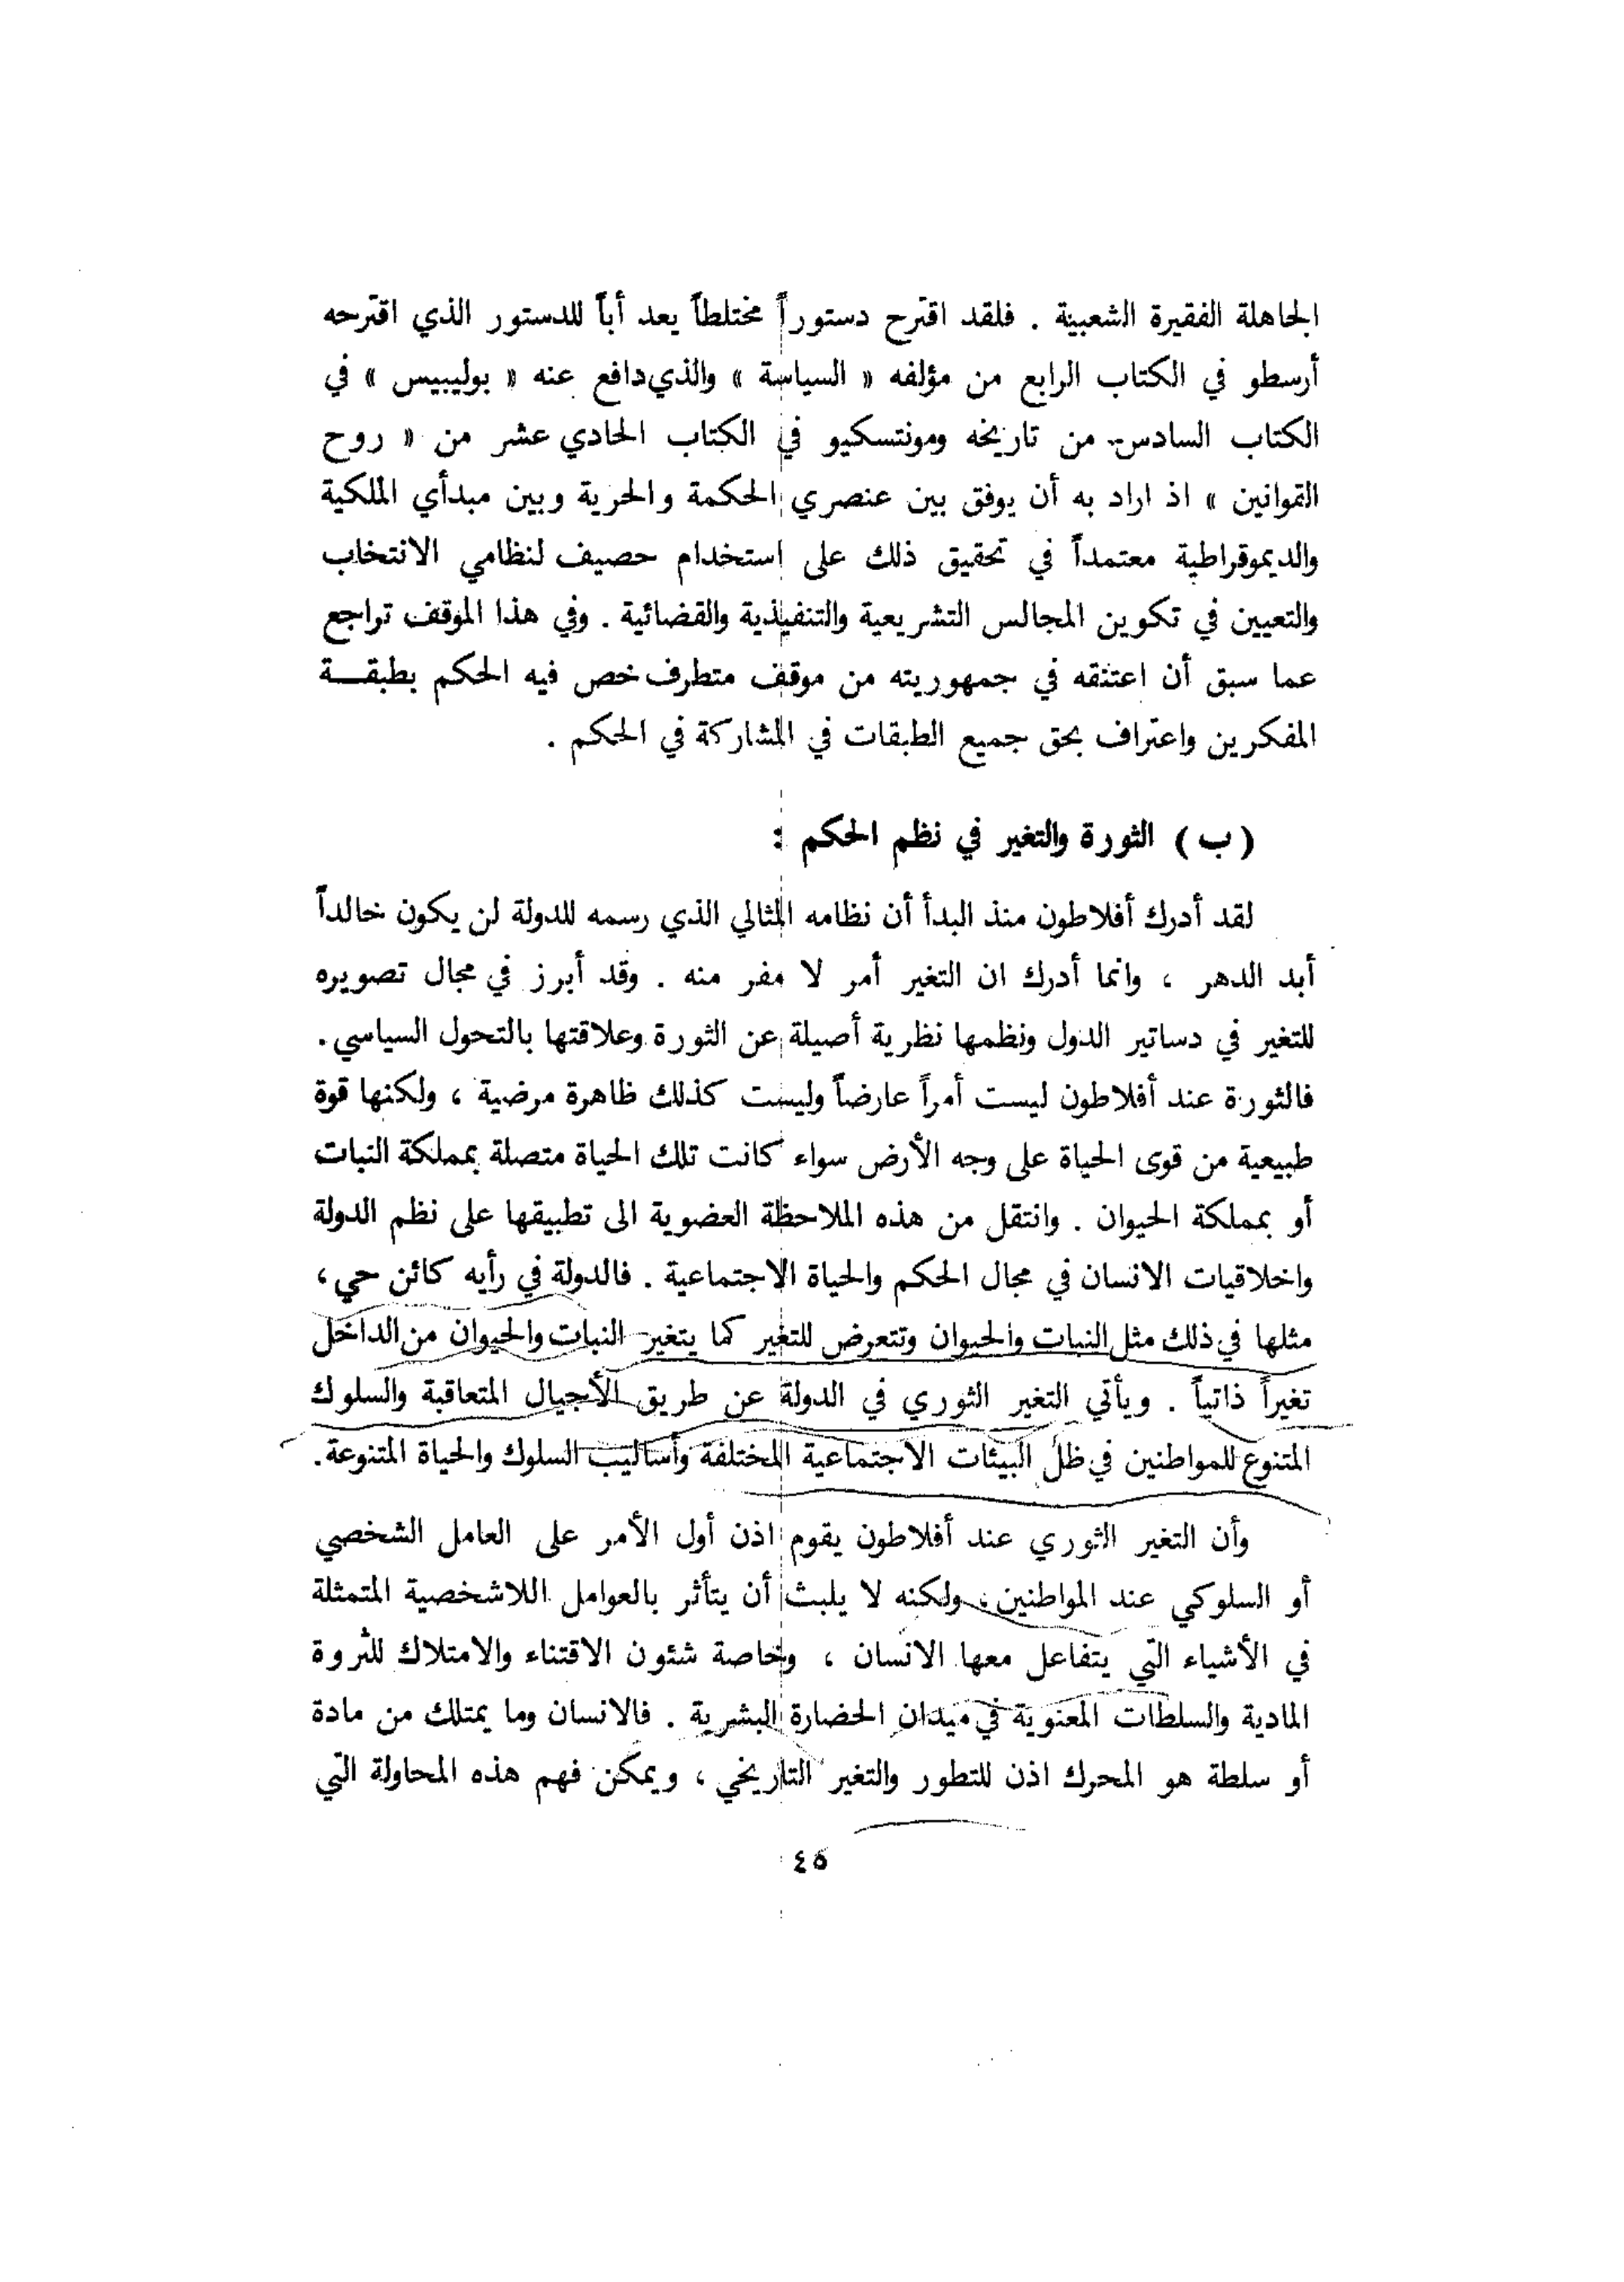 الجاهلة الفقيرة الشعبية . فلقد اقترح دستوراً مختلطاً يعد أباً للدستور الذي اقترحه
أرسطو في الكتاب الرابع من مؤلفه « السياسة » والذي دافع عنه « بوليبيس » في
الكتاب السادس من تاريخه ومونتسكيو في الكتاب الحادي عشر من « روح
القوانين » اذ اراد به أن يوفق بين عنصري الحكمة والحرية وبين مبدأي الملكية
والديموقراطية معتمداً في تحقيق ذلك على إستخدام حصيف لنظامي الانتخاب
والتعيين في تكوين المجالس التشريعية والتنفيذية والقضائية . وفي هذا الموقف تراجع
عما سبق أن اعتنقه في جمهوريته من موقف متطرف خص فيه الحكم بطبقـــة
المفكرين واعتراف بحق جميع الطبقات في المشاركة في الحكم .
( ب ) الثورة والتغير في نظم الحكم :
لقد أدرك أفلاطون منذ البدأ أن نظامه المثالي الذي رسمه للدولة لن يكون خالداً
أبد الدهر ، وانما أدرك ان التغير أمر لا مفر منه . وقد أبرز في مجال تصويره
للتغير في دساتير الدول ونظمها نظرية أصيلة عن الثورة وعلاقتها بالتحول السياسي .
فالثورة عند أفلاطون ليست أمراً عارضاً وليست كذلك ظاهرة مرضية ، ولكنها قوة
طبيعية من قوى الحياة على وجه الأرض سواء كانت تلك الحياة متصلة بمملكة النبات
أو بمملكة الحيوان . وانتقل من هذه الملاحظة العضوية الى تطبيقها على نظم الدولة
واخلاقيات الانسان في مجال الحكم والحياة الاجتماعية . فالدولة في رأيه كائن حي ،
مثلها في ذلك مثل النبات والحيوان وتتعرض للتغير كما يتغير النبات والحيوان من الداخل
تغيراً ذاتياً . ويأتي التغير الثوري في الدولة عن طريق الأجيال المتعاقبة والسلوك
المتنوع للمواطنين في ظل البيئات الاجتماعية المختلفة وأساليب السلوك والحياة المتنوعة .
وأن التغير الثوري عند أفلاطون يقوم اذن أول الأمر على العامل الشخصي
أو السلوكي عند المواطنين ، ولكنه لا يلبث أن يتأثر بالعوامل اللاشخصية المتمثلة
في الأشياء التي يتفاعل معها الانسان ، وخاصة شئون الاقتناء والامتلاك للثروة
المادية والسلطات المعنوية في ميدان الحضارة البشرية . فالانسان وما يمتلك من مادة
أو سلطة هو المحرك اذن للتطور والتغير التاريخي ، ويمكن فهم هذه المحاولة التي
٤٥